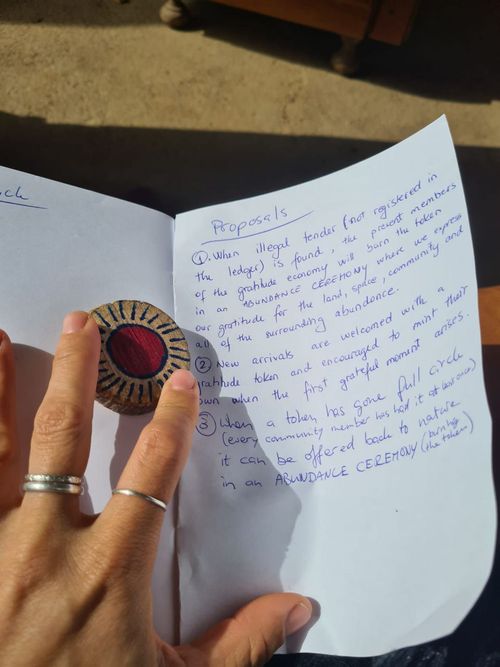 ch
Proposals
①. When illegal tender (not registered in
the ledger) is found, the present members
of the gratitude economy will burn the token
in an ABUNDANCE CEREMONY where we express
our gratitude for the land, space, community and
all of the surrounding abundance.
② New arrivals are welcomed with a
gratitude token and encouraged to mint their
own when the first grateful moment arises.
③ When a token has gone full circle
(every community member has had it at least once)
it can be offered back to nature
in an ABUNDANCE CEREMONY (burning
the token)